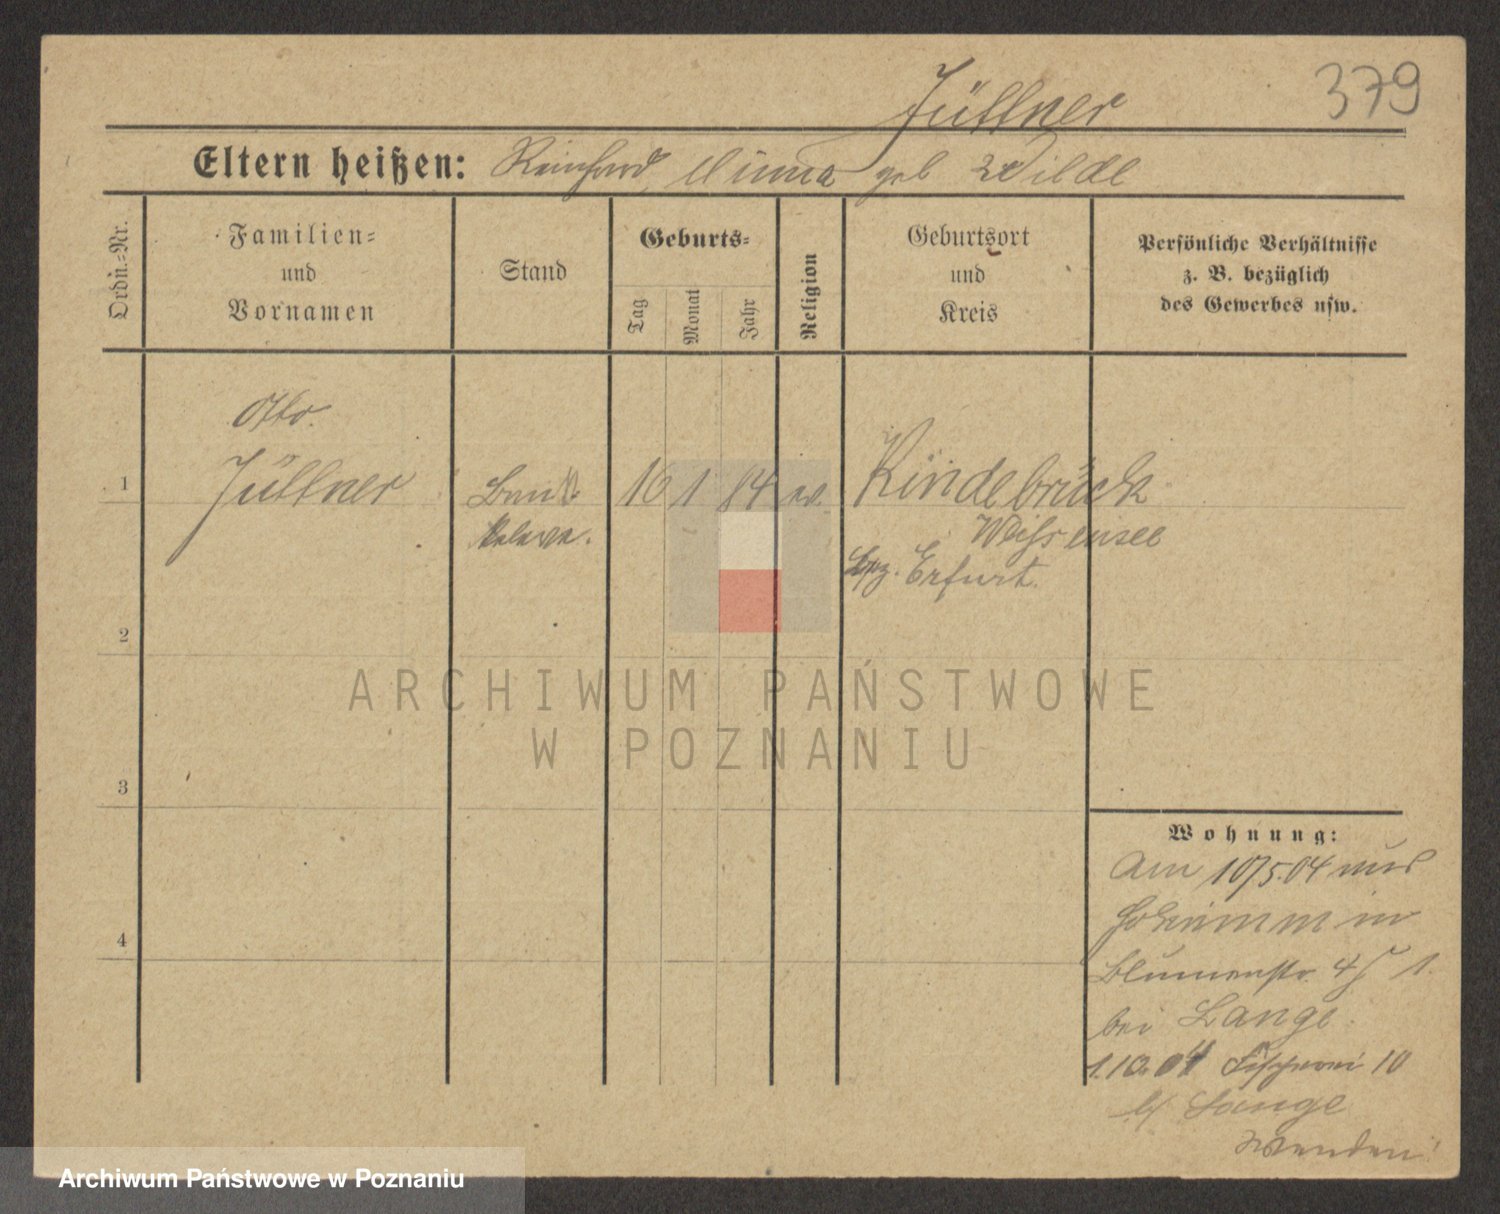 379
Jüllner
Eltern heißen: Reinhard, Minna geb Wilde
Ordn.-Nr.
Familien-
und
Vornamen
Stand
Geburts-
Tag
Monat
Jahr
Religion
Geburtsort
und
Kreis
Persönliche Verhältnisse
z. B. bezüglich
des Gewerbes usw.
Otto.
1 Jüllner 16 1 84 ev. Kindebrück
Weißensee
Bez. Erfurt.
2
3
4
ARCHIWUM PAŃSTWOWE
W POZNANIU
Wohnung:
Am 10/5.04 aus
in
Blumenstr. 1.
bei Lange.
1.10.04 Fischerei 10
b/ Lange
Wenden!
Archiwum Państwowe w Poznaniu